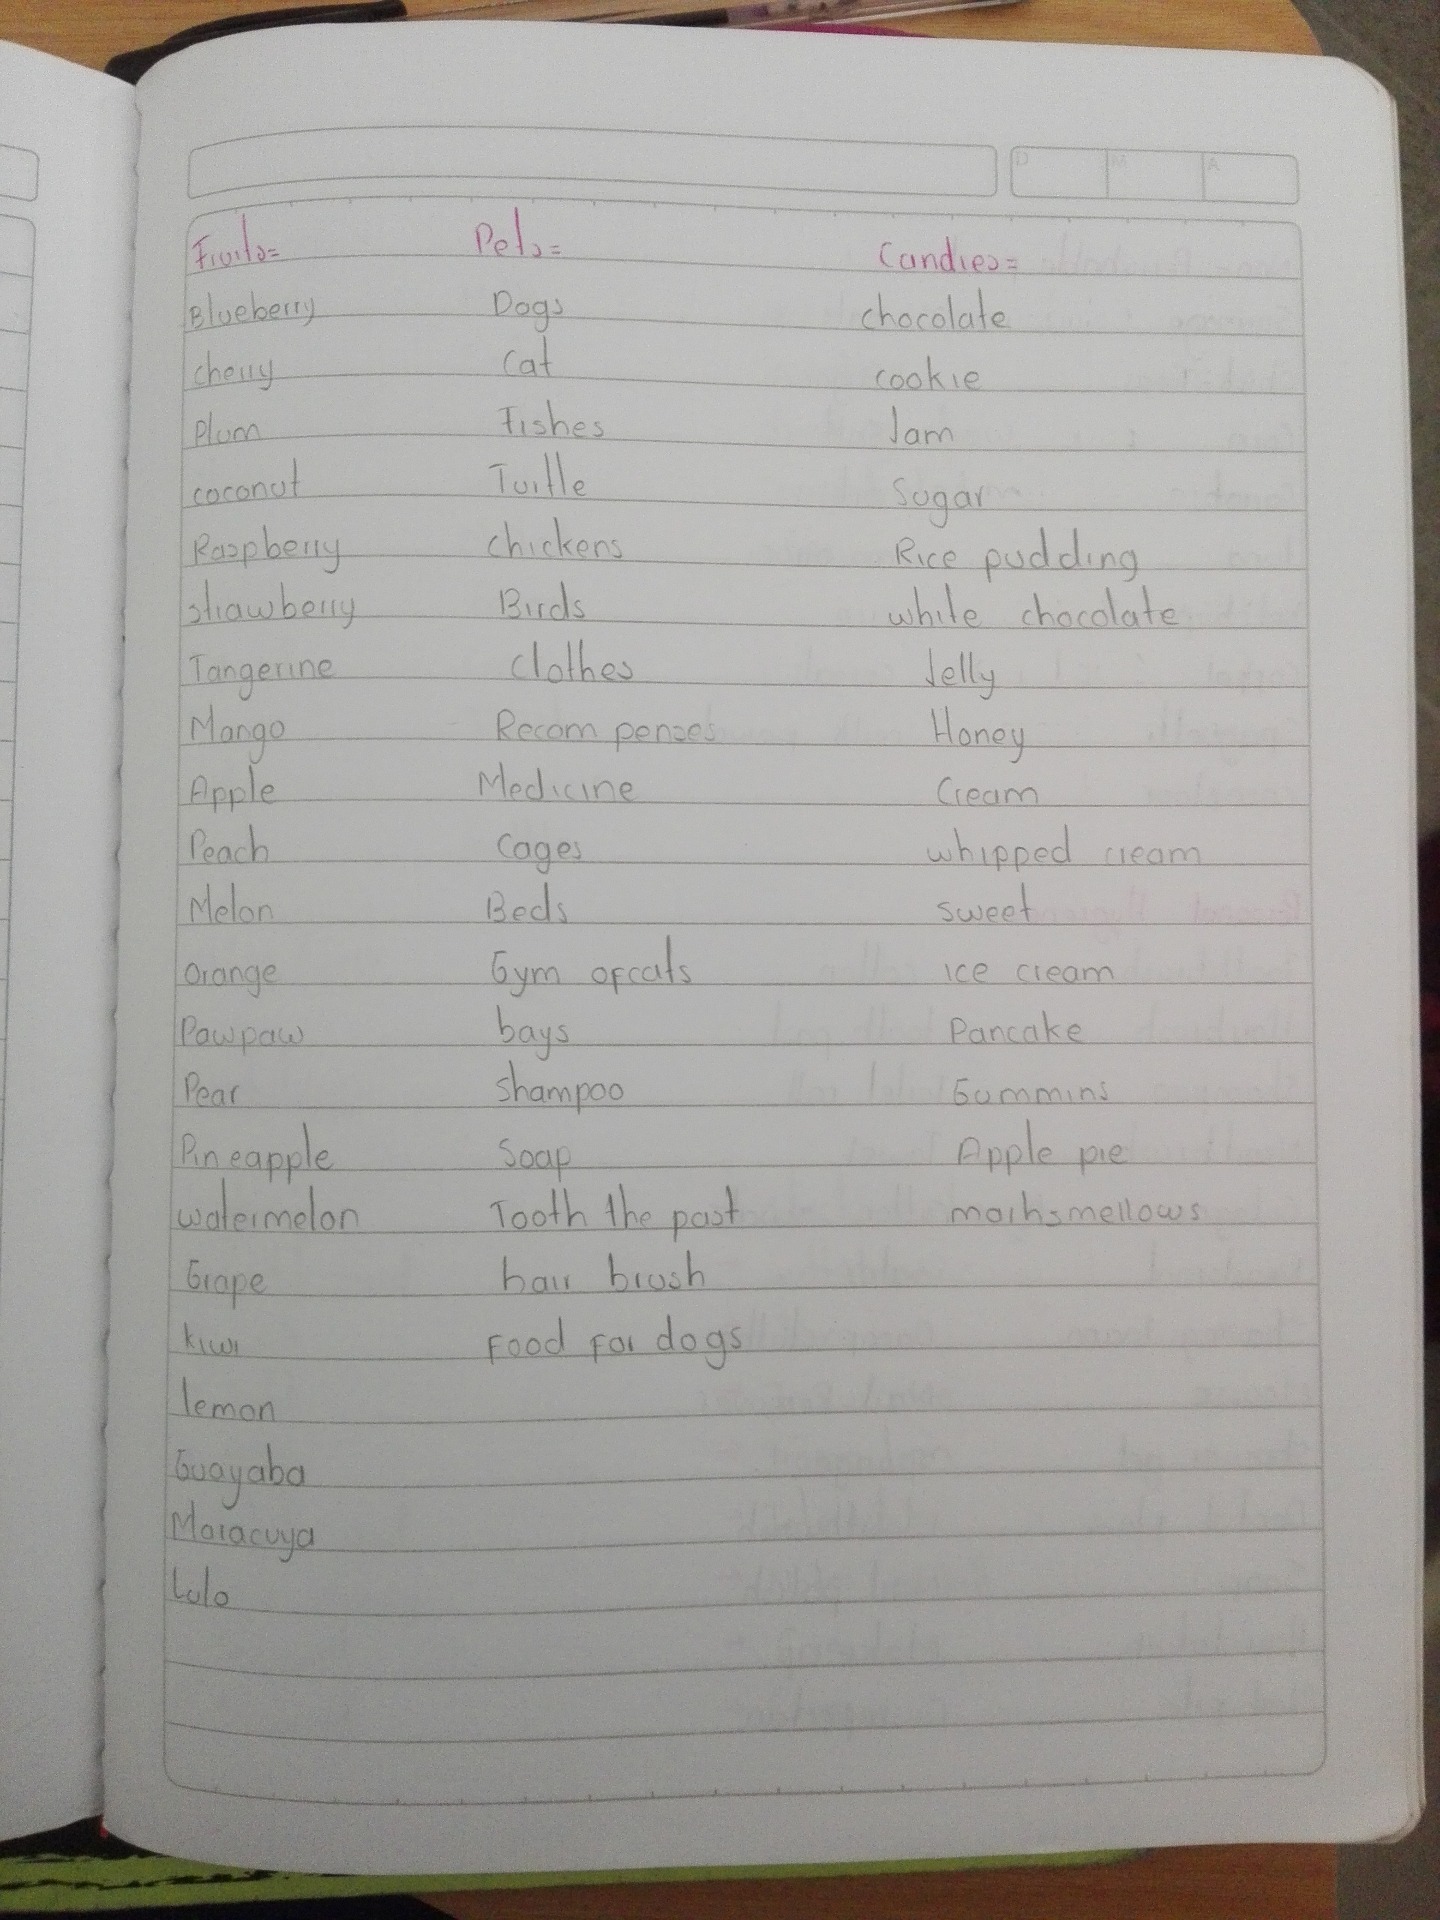 D M A
Fruits= Pets= Candies=
Blueberry Dogs chocolate
cherry cat cookie
Plum Fishes Jam
coconut Turtle Sugar
Raspberry chickens Rice pudding
strawberry Birds white chocolate
Tangerine clothes Jelly
Mango Recompenses Honey
Apple Medicine Cream
Peach cages whipped cream
Melon Beds sweet
orange Gym ofcats ice cream
Pawpaw bays Pancake
Pear shampoo Gummins
Pineapple Soap Apple pie
watermelon Tooth the past marhsmellows
Grape hair brush
kiwi Food For dogs
lemon
Guayaba
Maracuya
Lulo